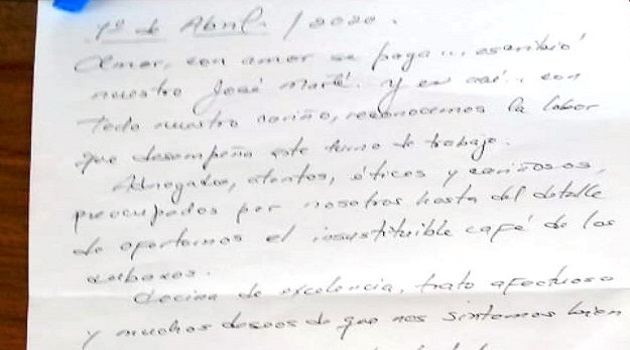 1º de Abril / 2020.
Amor, con amor se paga... escribió
nuestro José Martí. Y es así.. con
todo nuestro cariño, reconocemos la labor
que desempeña este turno de trabajo.
Abnegados, atentos, éticos y cariñosos,
preocupados por nosotros hasta del detalle
de ofertarnos el insustituible café de los
cubanos.
Cocina de excelencia, trato afectuoso
y muchos deseos de que nos sintamos bien